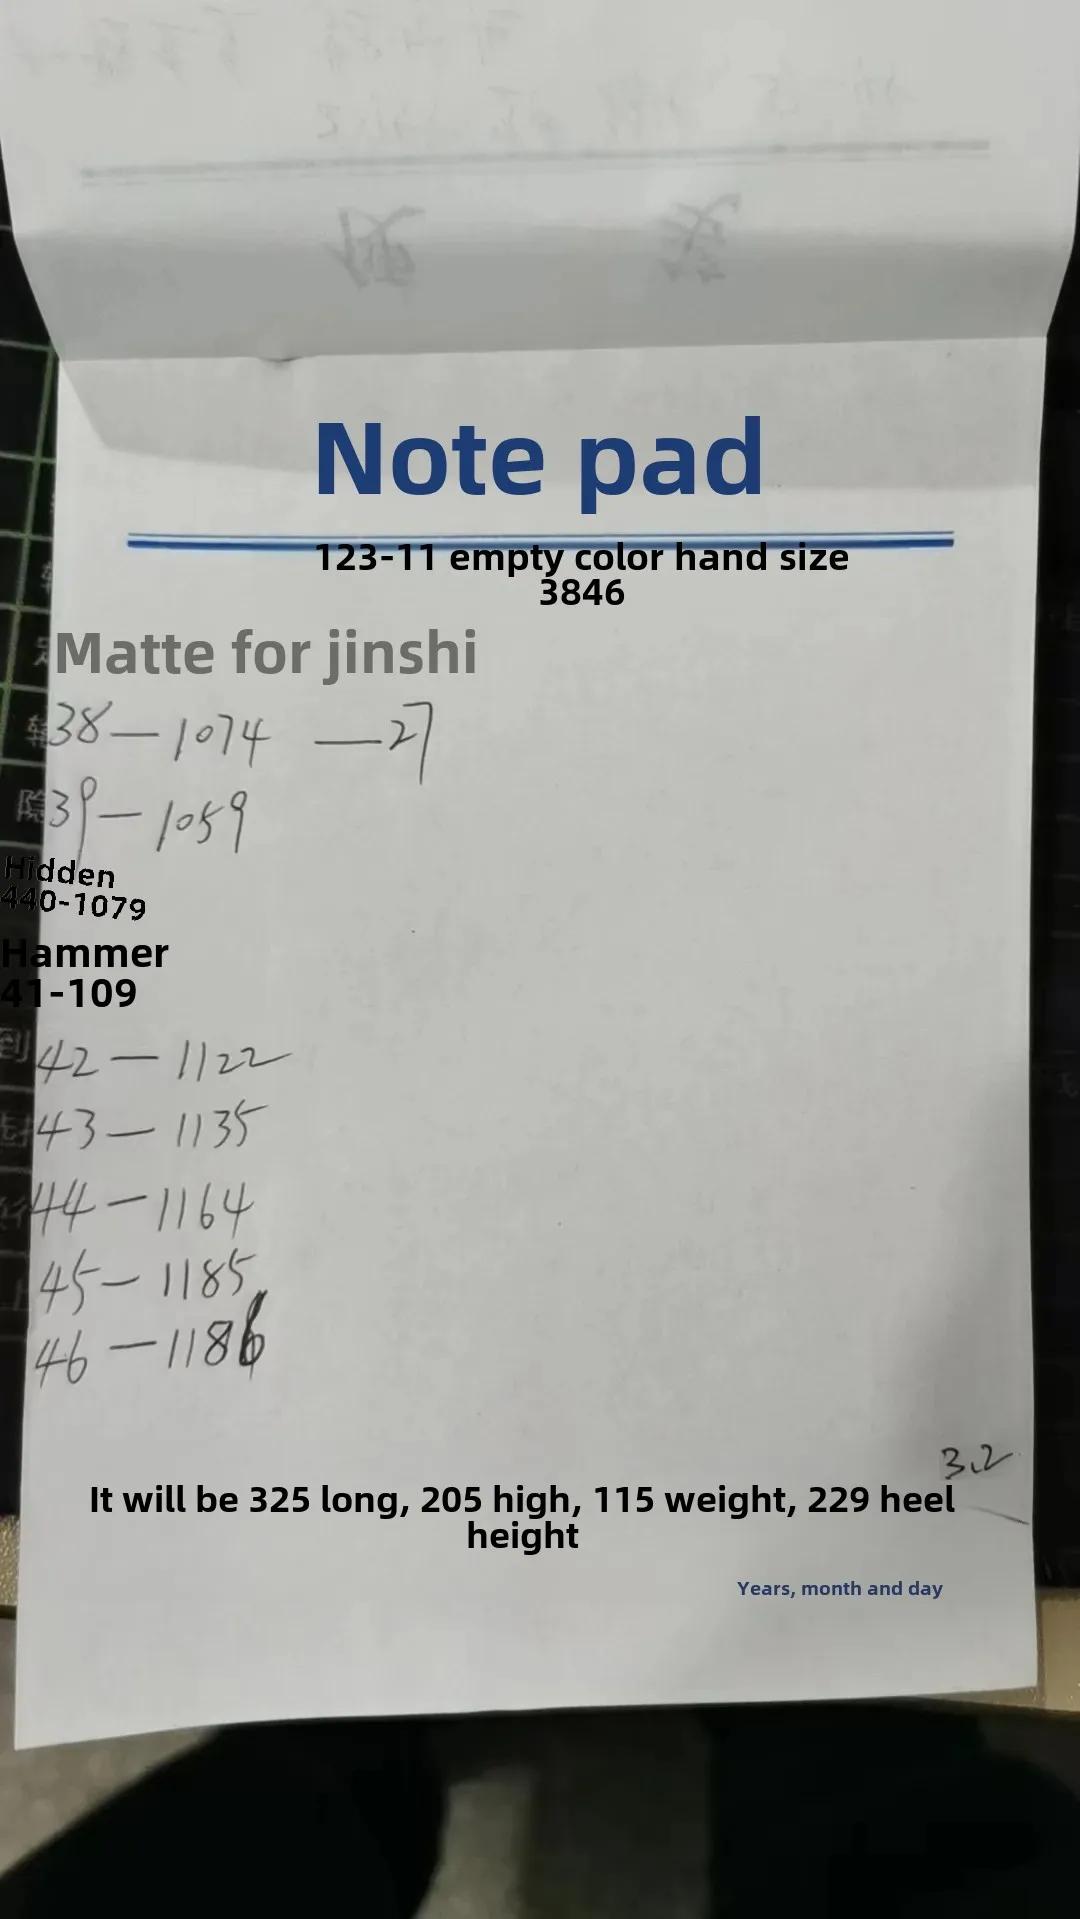 Note pad
123-11 empty color hand size
3846
Matte for jinshi
38—1074 —27
39—1059
Hidden
440-1079
Hammer
41-109
42—1122
43—1135
44—1164
45—1185
46—1186
3.2
It will be 325 long, 205 high, 115 weight, 229 heel
height
Years, month and day